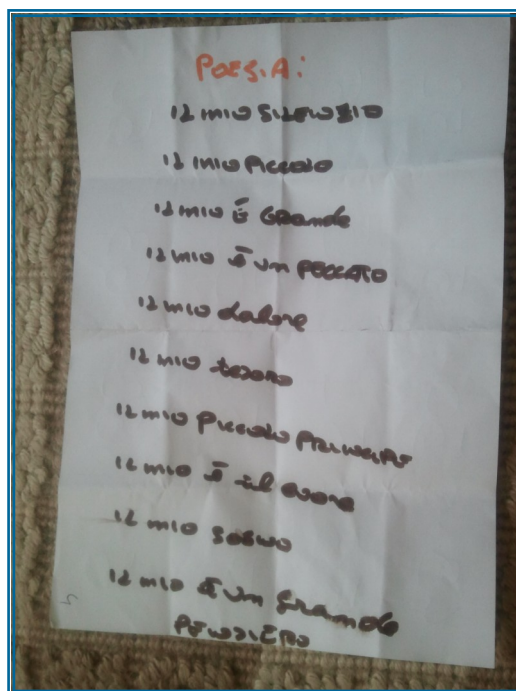 POESIA:
IL MIO SILENZIO
IL MIO PICCOLO
IL MIO È GRande
IL MIO È un PECCATO
IL MIO dolore
IL MIO tesoro
IL MIO PICCOLO PRINCIPE
IL MIO È il cuore
IL MIO SOGNO
IL MIO È un Grande
PENSIERO